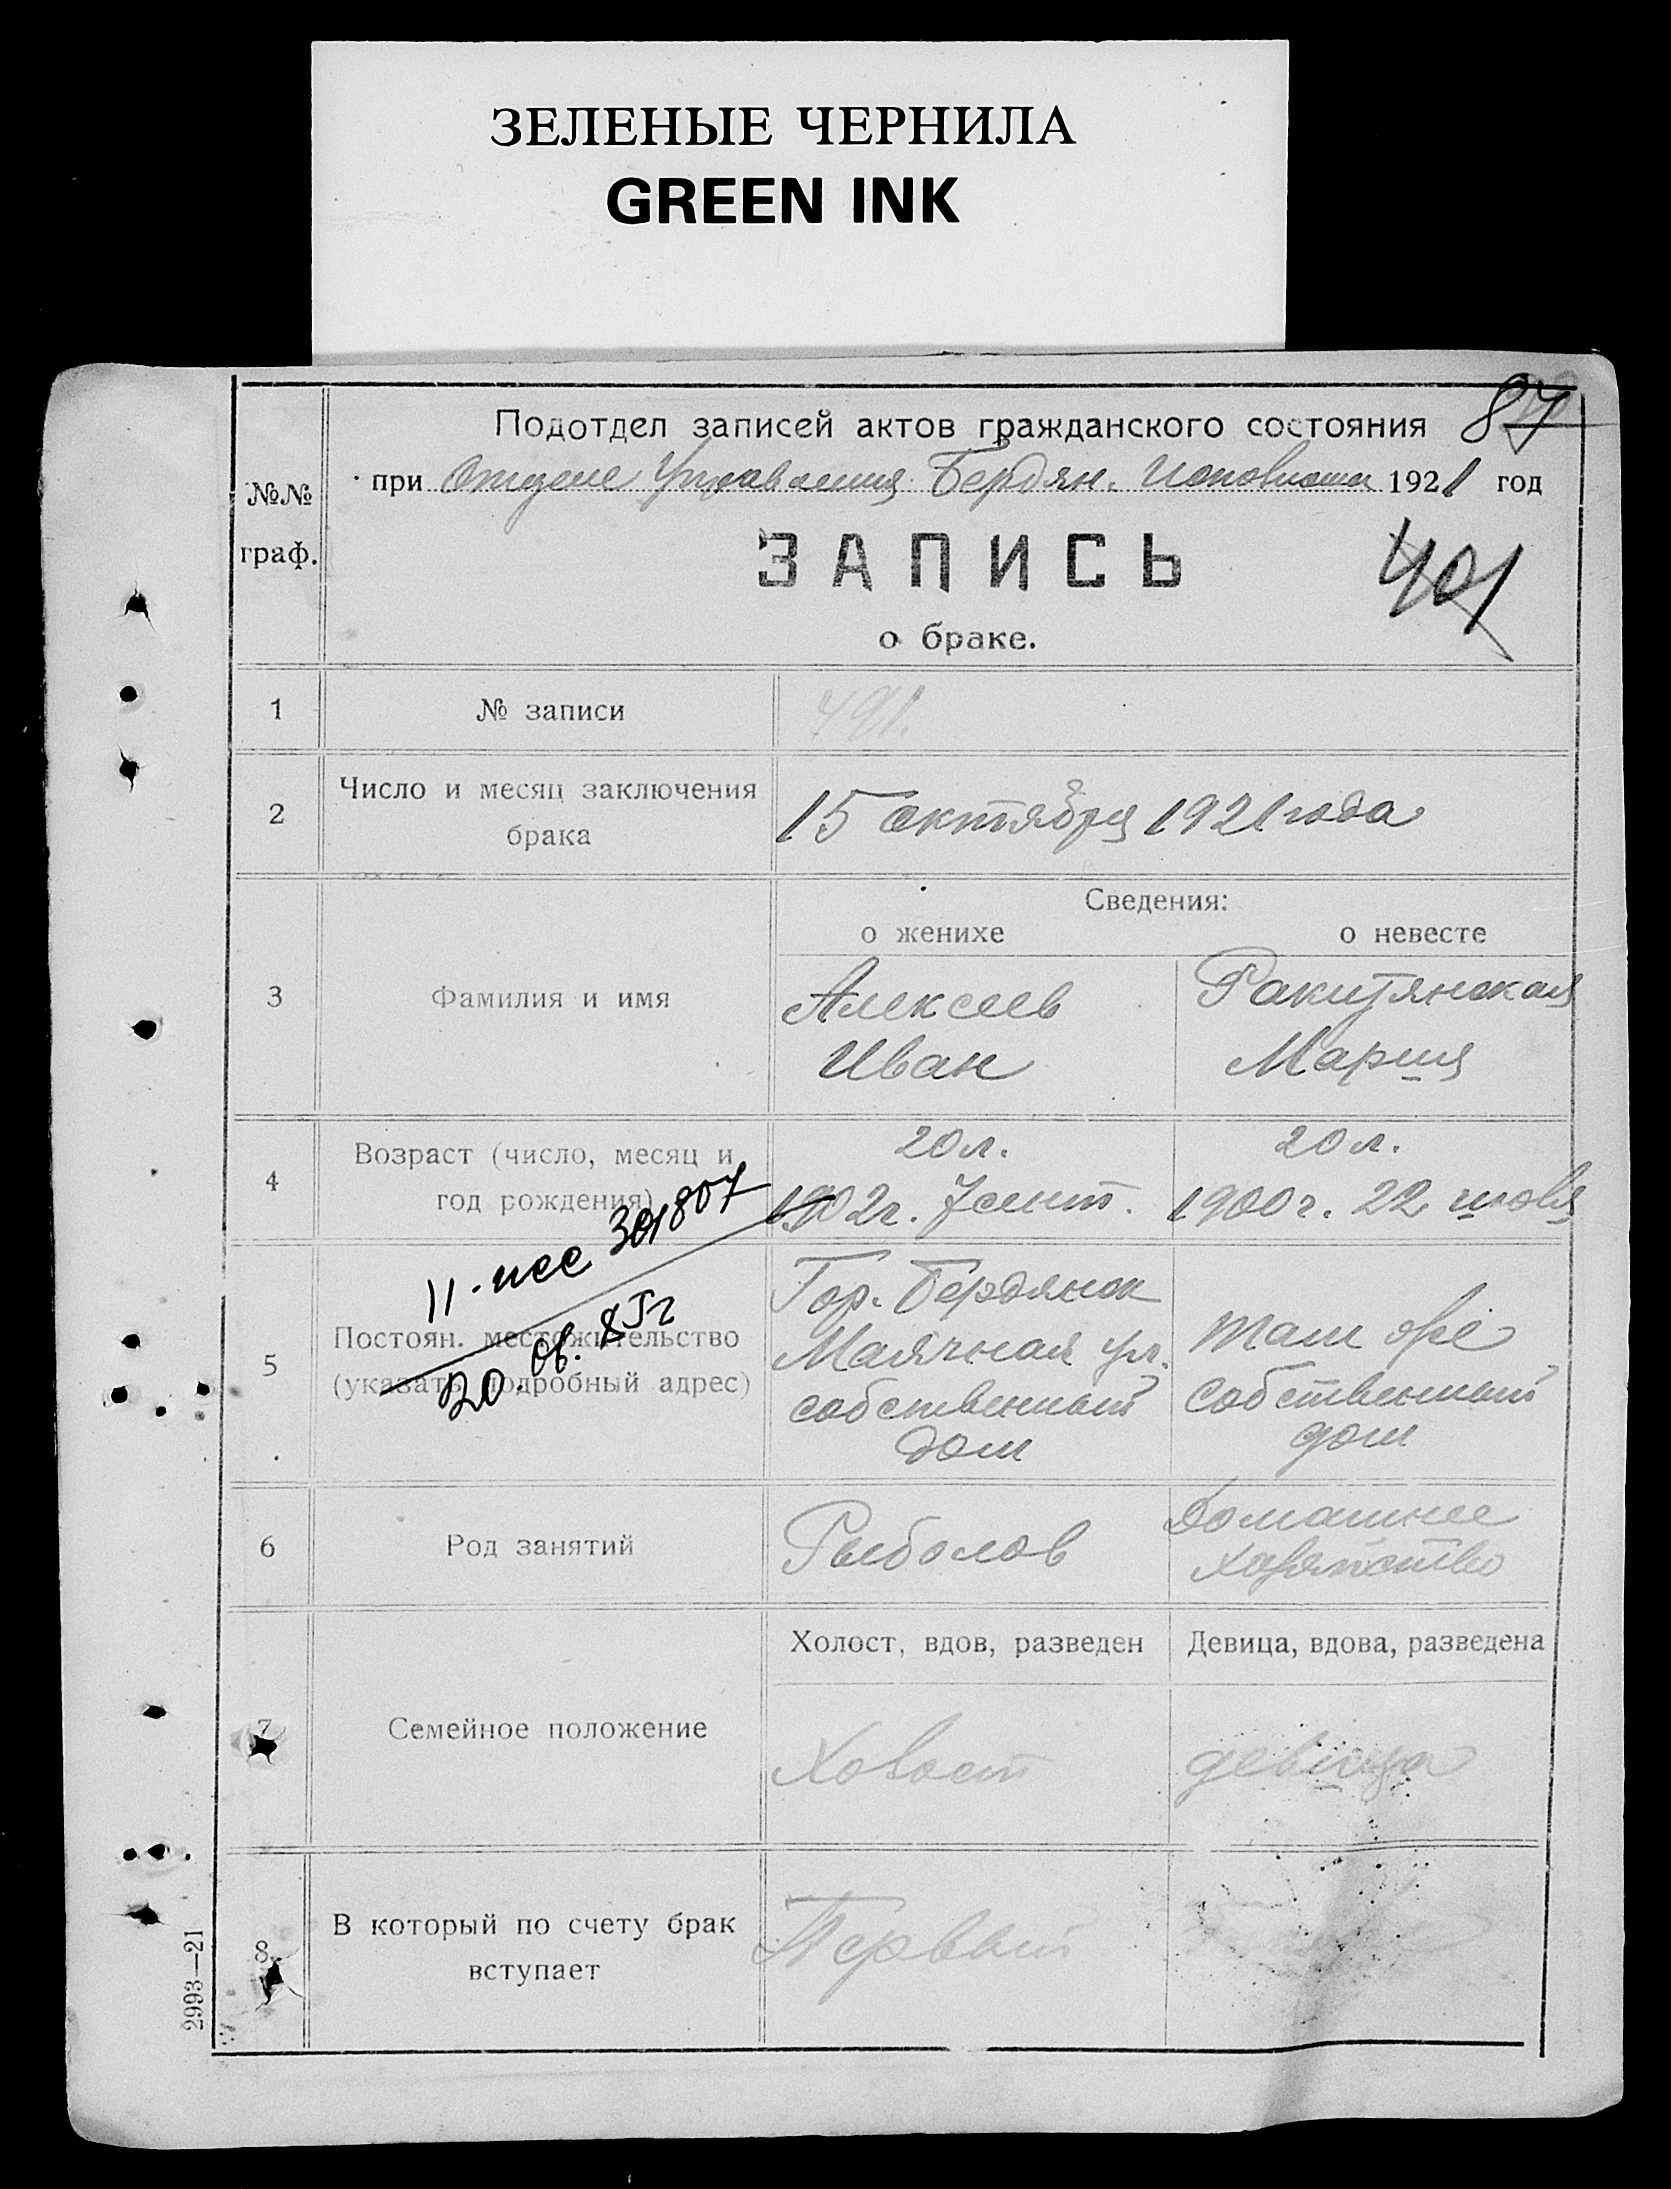 ЗЕЛЕНЫЕ ЧЕРНИЛА
GREEN INK
87
№№
граф.
Подотдел записей актов гражданского состояния
при Отделе Управления Бердян. Исполкома 1921 год
ЗАПИСЬ
401
о браке.
1 № записи 491.
2 Число и месяц заключения
брака
15 октября 1921 года
Сведения:
о женихе о невесте
3 Фамилия и имя
Алексеев
Иван
Ракитянская
Мария
4 Возраст (число, месяц и
год рождения)
20 л.
1902г. 7 сент.
20 л.
1900 г. 22 июля
301807
20. 85г
5 Постоян. местожительство
(указать подробный адрес)
Гор. Бердянск
Маячная ул.
собственный
дом
там же
собственный
дом
6 Род занятий
Рыболов
Домашнее
хозяйство
Холост, вдов, разведен Девица, вдова, разведена
7 Семейное положение
Холост
девица
8 В который по счету брак
вступает
Первый
2993—21